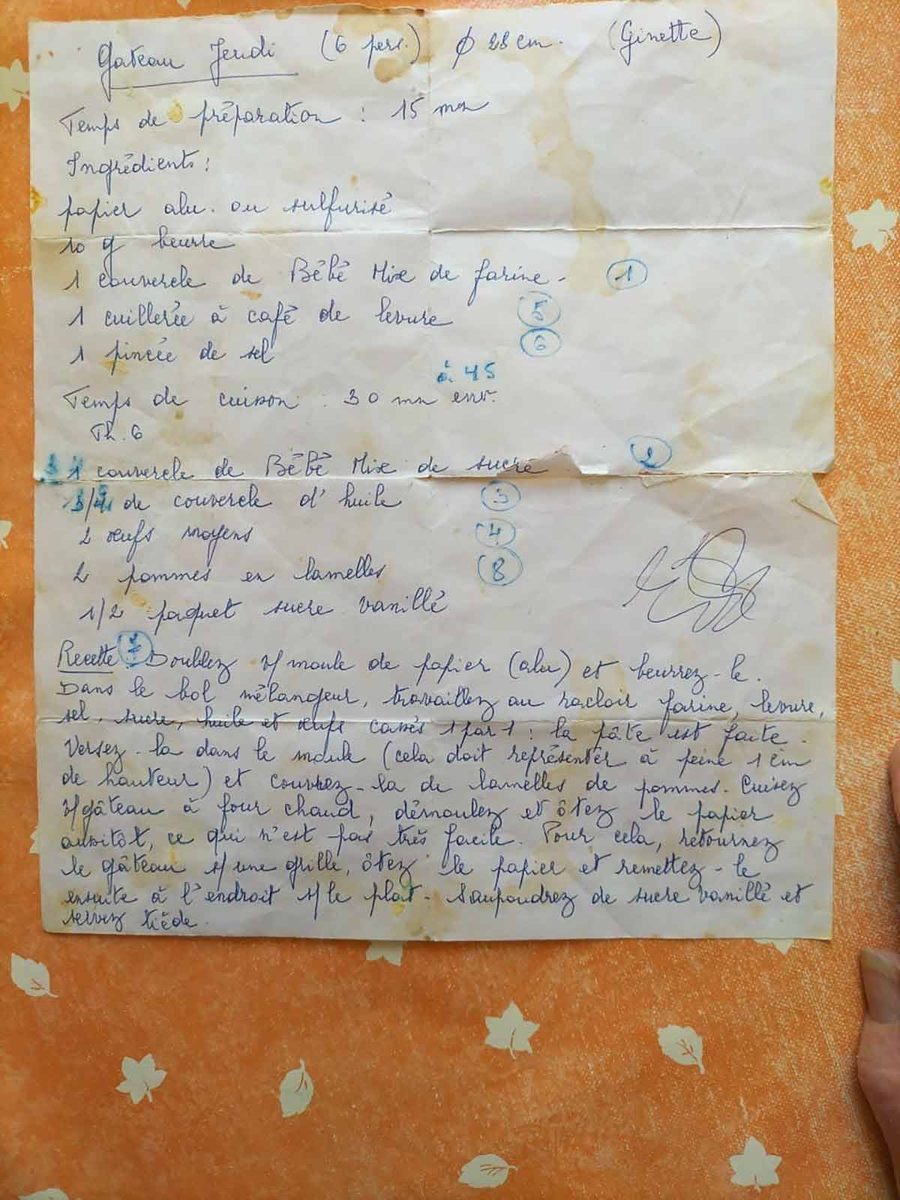 Gateau Jeudi (6 pers.) ϕ 28 cm. (Ginette)
Temps de préparation : 15 mn
Ingrédients :
papier alu. ou sulfurisé
10 g beurre
1 couvercle de Bébé Mixe de farine - 1
1 cuillerée à café de levure 5
1 pincée de sel 6
à 45
Temps de cuisson : 30 mn env.
Th. 6
1 couvercle de Bébé Mixe de sucre 2
de couvercle d'huile 3
2 œufs moyens 4
2 pommes en lamelles 8
1/2 paquet sucre vanillé
Recette Doublez 1/moule de papier (alu) et beurrez-le.
Dans le bol mélangeur, travaillez au racloir farine, levure,
sel, sucre, huile et œufs cassés 1 par 1 : la pâte est faite.
Versez-la dans le moule (cela doit représenter à peine 1 cm
de hauteur) et couvrez-la de lamelles de pommes. Cuisez
1/gâteau à four chaud, démoulez et ôtez le papier
aussitôt, ce qui n'est pas très facile. Pour cela, retournez
le gâteau s/une grille, ôtez le papier et remettez-le
ensuite à l'endroit s/le plat. Saupoudrez de sucre vanillé et
servez tiède.